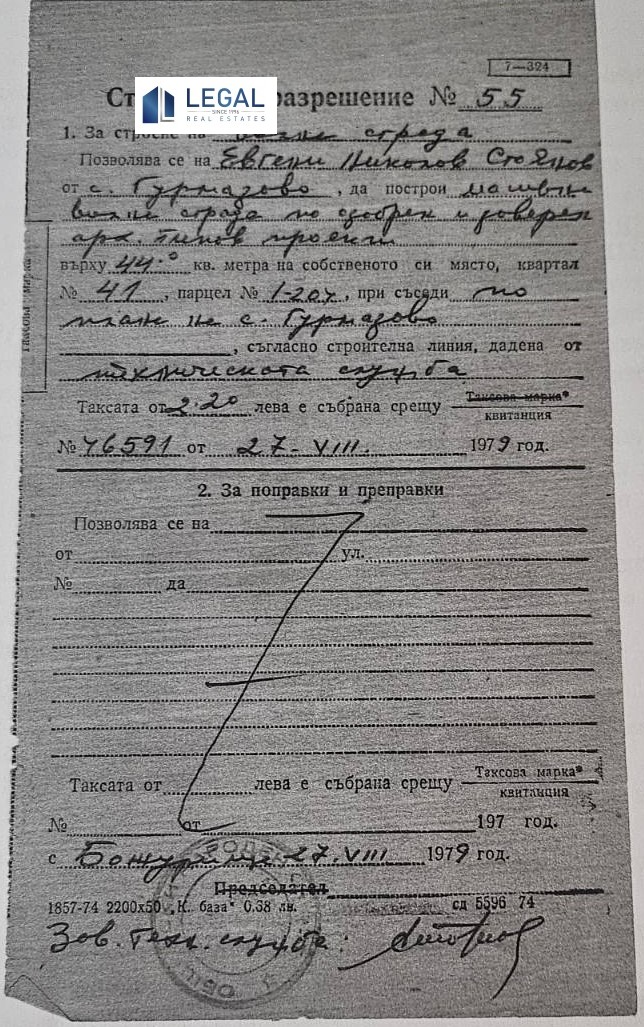 7—324
LEGAL
SINCE 1996
REAL ESTATES
Ст разрешение № 55
1. За строеж на вилна сграда
Позволява се на Евгени Николов Стоянов
от с. Гурмазово, да построи масивна
вилна сграда по одобрен и заверен
арх. типов проект
върху 44.0 кв. метра на собственото си място, квартал
№ 41, парцел № I-207, при съседи по
план на с. Гурмазово
, съгласно строителна линия, дадена от
техническата служба
Таксата от 2.20 лева е събрана срещу Таксова марка* квитанция
№ 46591 от 27-VIII. 1979 год.
Таксова марка
2. За поправки и преправки
Позволява се на
от ул.
№ да
Таксата от лева е събрана срещу Таксова марка* квитанция
№ от 197 год.
с Божурище 27.VIII 1979 год.
Председател
1857-74 2200х50 „К. база“ 0.38 лв. сд 5596 74
Зав. техн. служба: